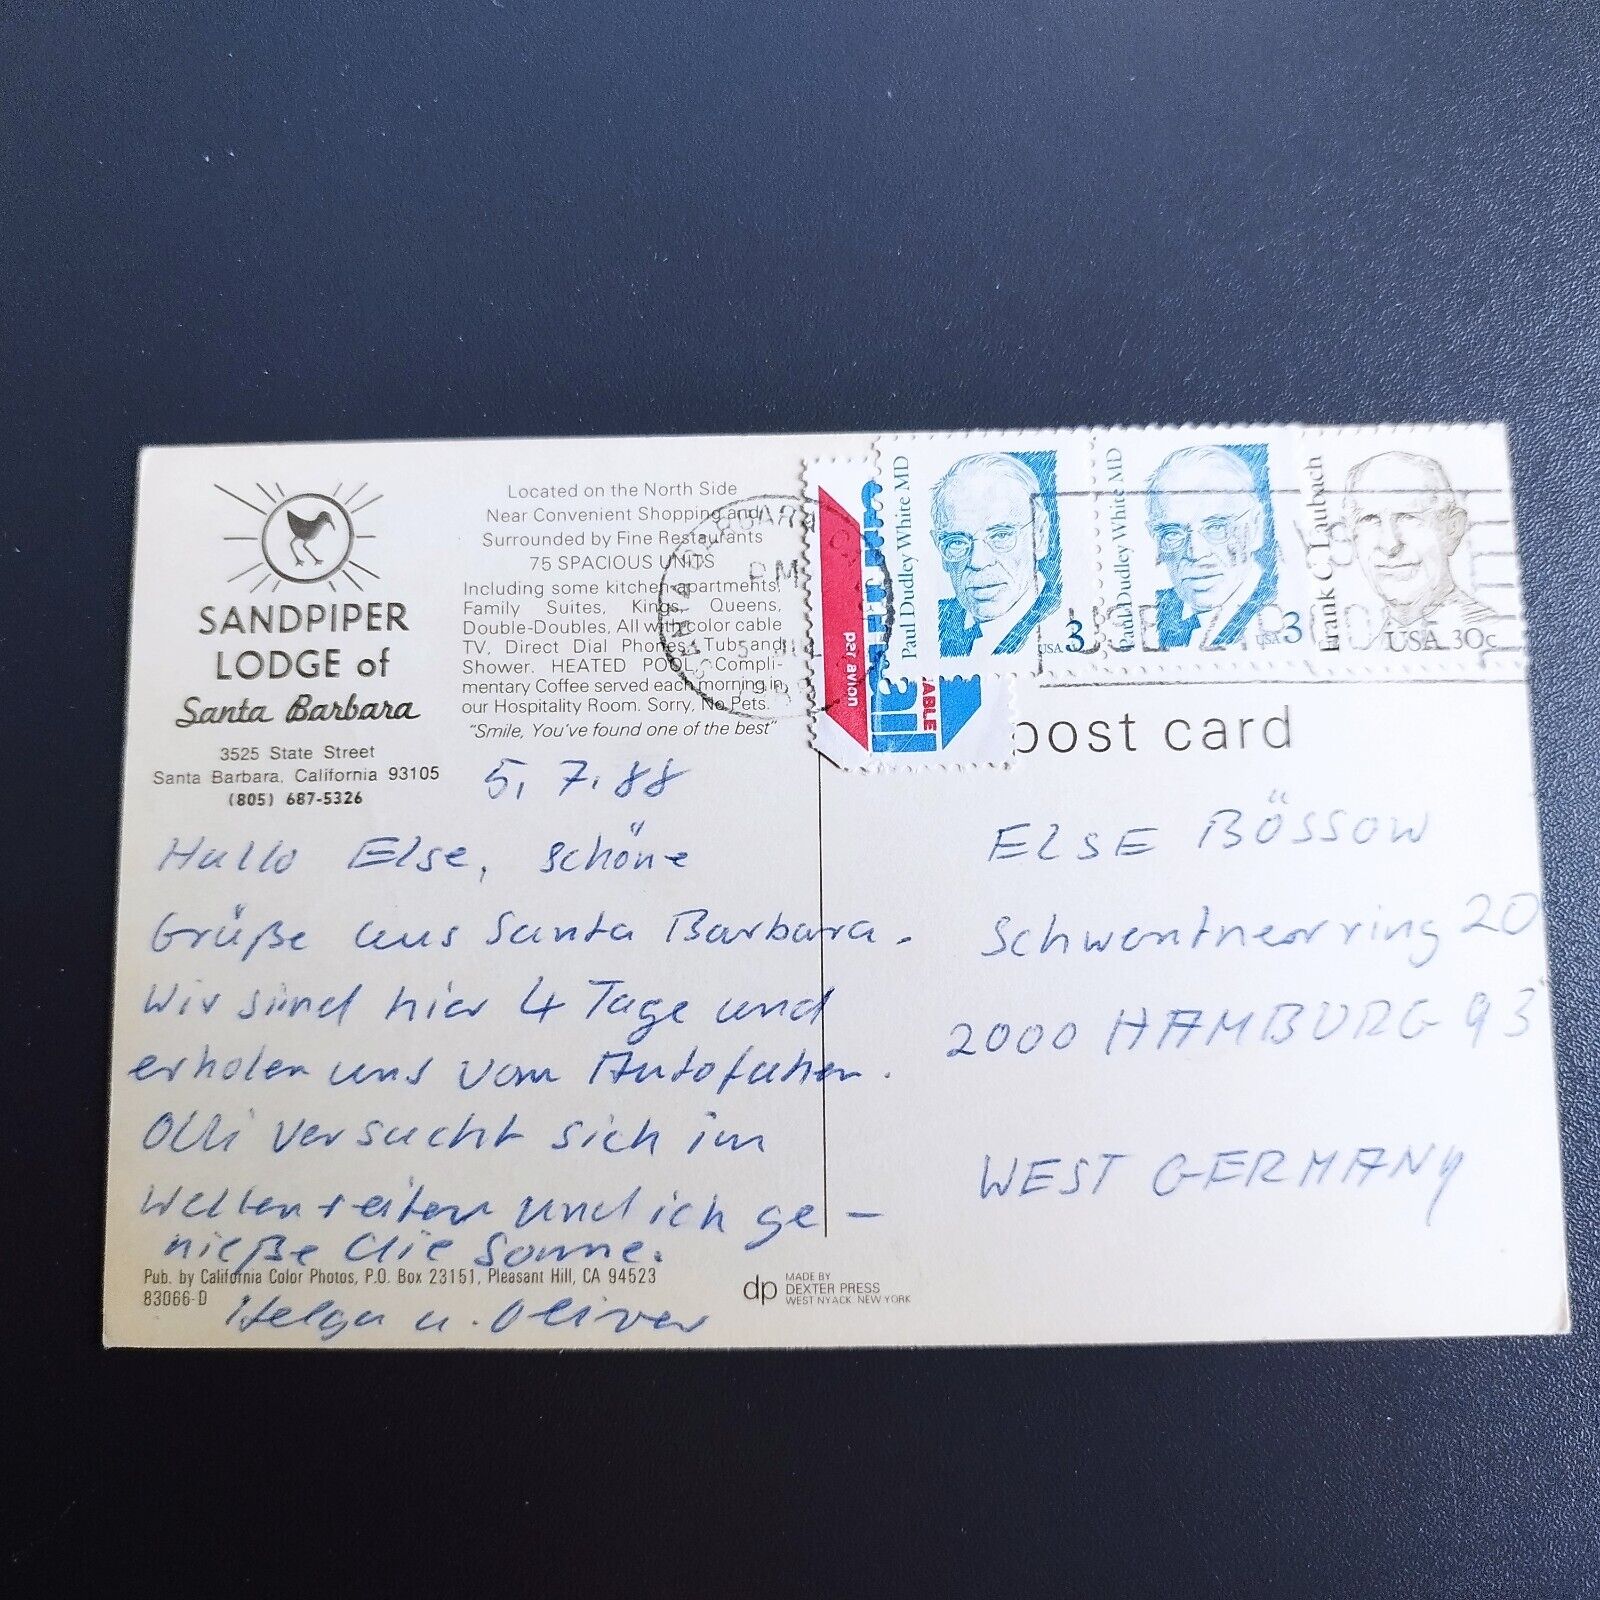 SANDPIPER
LODGE of
Santa Barbara
3525 State Street
Santa Barbara, California 93105
(805) 687-5326
Located on the North Side
Near Convenient Shopping and
Surrounded by Fine Restaurants
75 SPACIOUS UNITS
Including some kitchen apartments,
Family Suites, Kings, Queens,
Double-Doubles, All with color cable
TV, Direct Dial Phones, Tub and
Shower. HEATED POOL, Compli-
mentary Coffee served each morning in
our Hospitality Room. Sorry, No Pets.
"Smile, You've found one of the best"
5. 7. 88
Hallo Else, schöne
Grüße aus Santa Barbara.
Wir sind hier 4 Tage und
erholen uns vom Autofahren.
Olli versucht sich im
Wellenreiten und ich ge-
nieße die Sonne.
Helga u. Oliver
Pub. by California Color Photos, P.O. Box 23151, Pleasant Hill, CA 94523
83066-D
dp
MADE BY
DEXTER PRESS
WEST NYACK, NEW YORK
SANTA BARBARA
PM
5 JUL
per avion
Paul Dudley White MD
USA 3
Paul Dudley White MD
USA 3
Frank C. Laubach
USA 30c
USE ZIP CODE
post card
ELSE BÖSSOW
Schwentnerring 20
2000 HAMBURG 93
WEST GERMANY